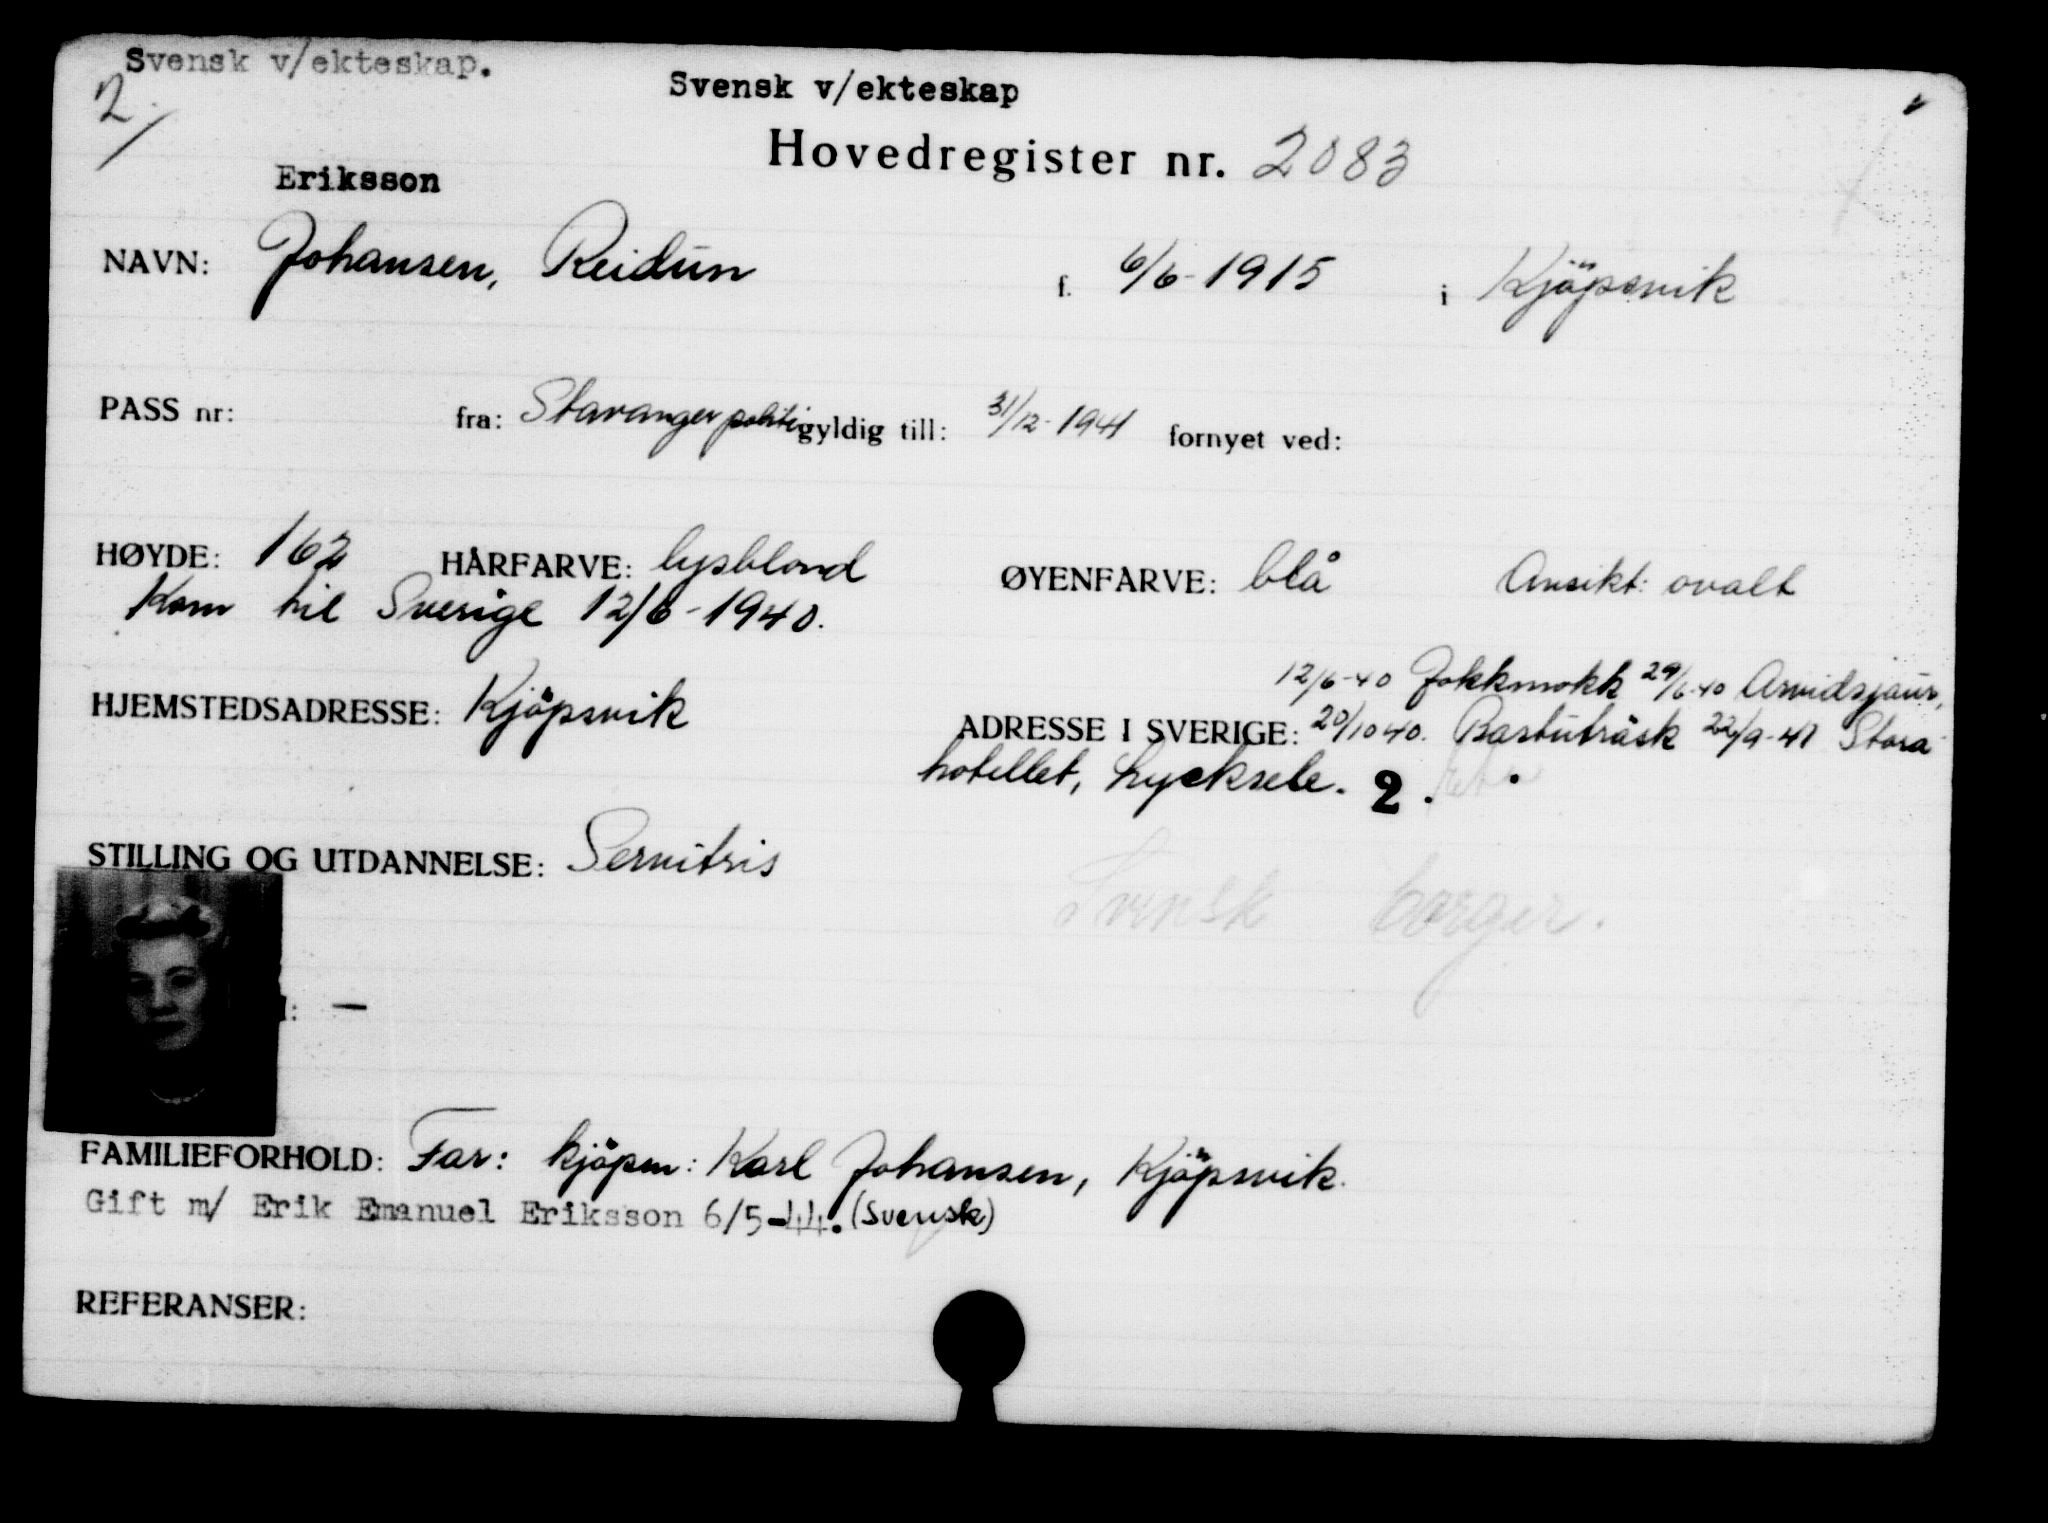 Svensk v/ekteskap.
Svensk v/ekteskap
2.
Hovedregister nr. 2083
Eriksson
NAVN: Johansen, Reidun f. 6/6-1915 i Kjöpsvik
PASS nr: fra: Stavanger politi gyldig till: 31/12-1941 fornyet ved:
HØYDE: 162 HÅRFARVE: lysblond ØYENFARVE: blå Ansikt: ovalt
Kom til Sverige 12/6-1940.
12/6-40 Jokkmokk 29/6-40 Arvidsjaur,
HJEMSTEDSADRESSE: Kjöpsvik ADRESSE I SVERIGE: 20/10 40. Bastuträsk 22/9-41 Stora
hotellet, Lycksele. 2.
STILLING OG UTDANNELSE: Servitris
Svensk borger.
: —
FAMILIEFORHOLD: Far: kjöpm: Karl Johansen, Kjöpsvik.
Gift m/ Erik Emanuel Eriksson 6/5-44. (Svensk)
REFERANSER: